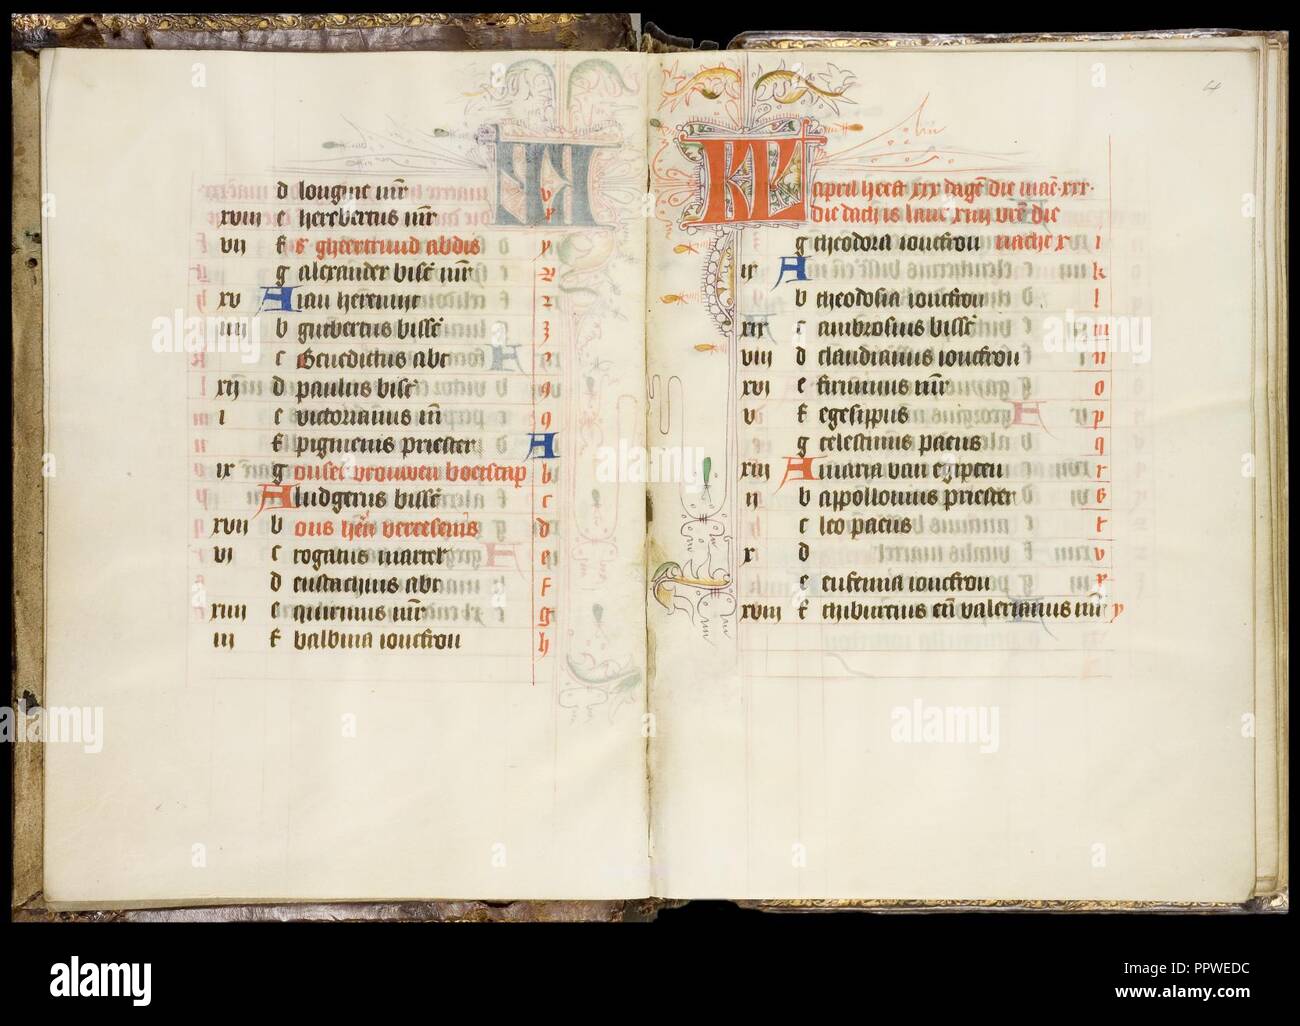 d longin⁹ mr̄
xviii e herebertus mr̄
vii f s gheertruud abdis y
g alexander bisc̄ mr̄
xv A ian heremijt
iiii b gutbertus bissc̄ z
c Benedictus abt
xij d paulus bisc̄ 9
i e victorianus m̄
f pigmenius priester A
ix g onser vrouwen boetscap b
A ludgerus bissc̄ c
xvii b ons hēn verrisenis d
vi c rogatus martel e
d eustachius abt f
xiiii e quirinus mr̄ g
iii f balbina ioncfrou h
4
KL april heeft xxx dagē die maē xxx
die dach is lanc xiiij vrē die
g theodora ioncfrou nacht x i
ix A k
b theodosia ioncfrou l
xix c ambrosius bissc̄ m
viii d claudianus ioncfrou n
xvi e firminus mr̄ o
v f egesippus p
g celestinus paeus q
xiii A maria van egipten r
ii b appollonius priester s
c leo paeus t
x d v
e eufemia ioncfrou x
xviii f thiburtius en̄ valerianus mr̄ y
alamy
Image ID: PPWEDC
www.alamy.com